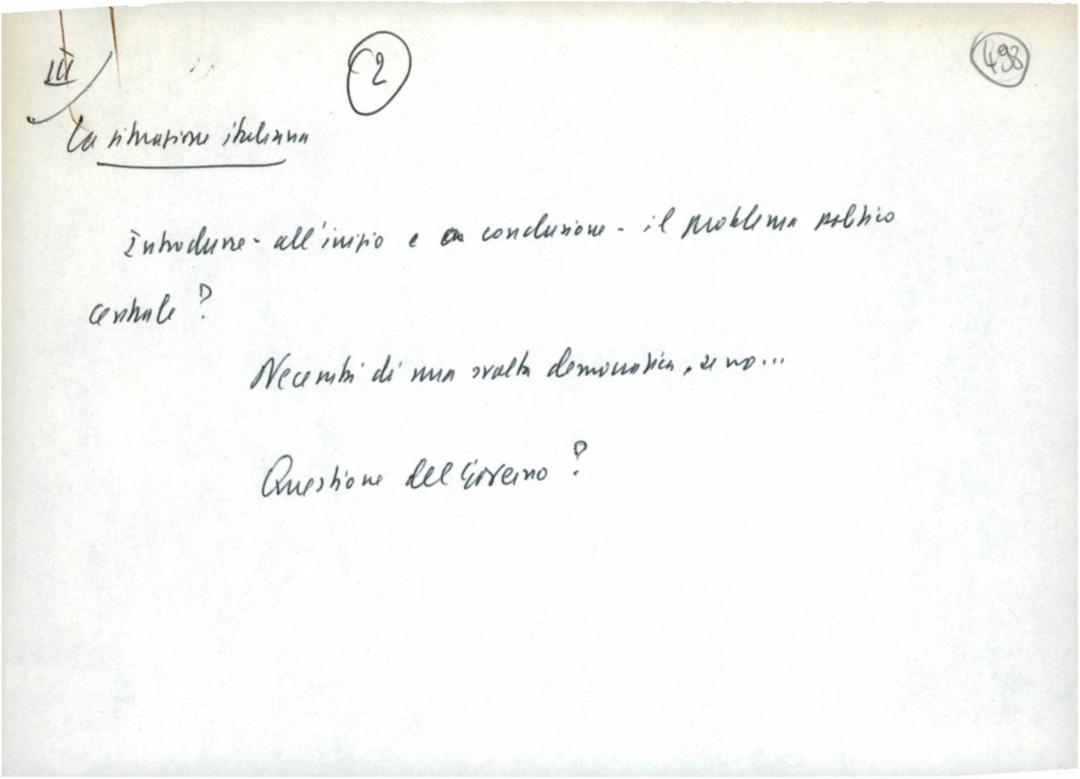 III
2
498
La situazione italiana
Introdurre - all'inizio e in conclusione - il problema politico
centrale?
Necessità di una svolta democratica, se no...
Questione del Governo?